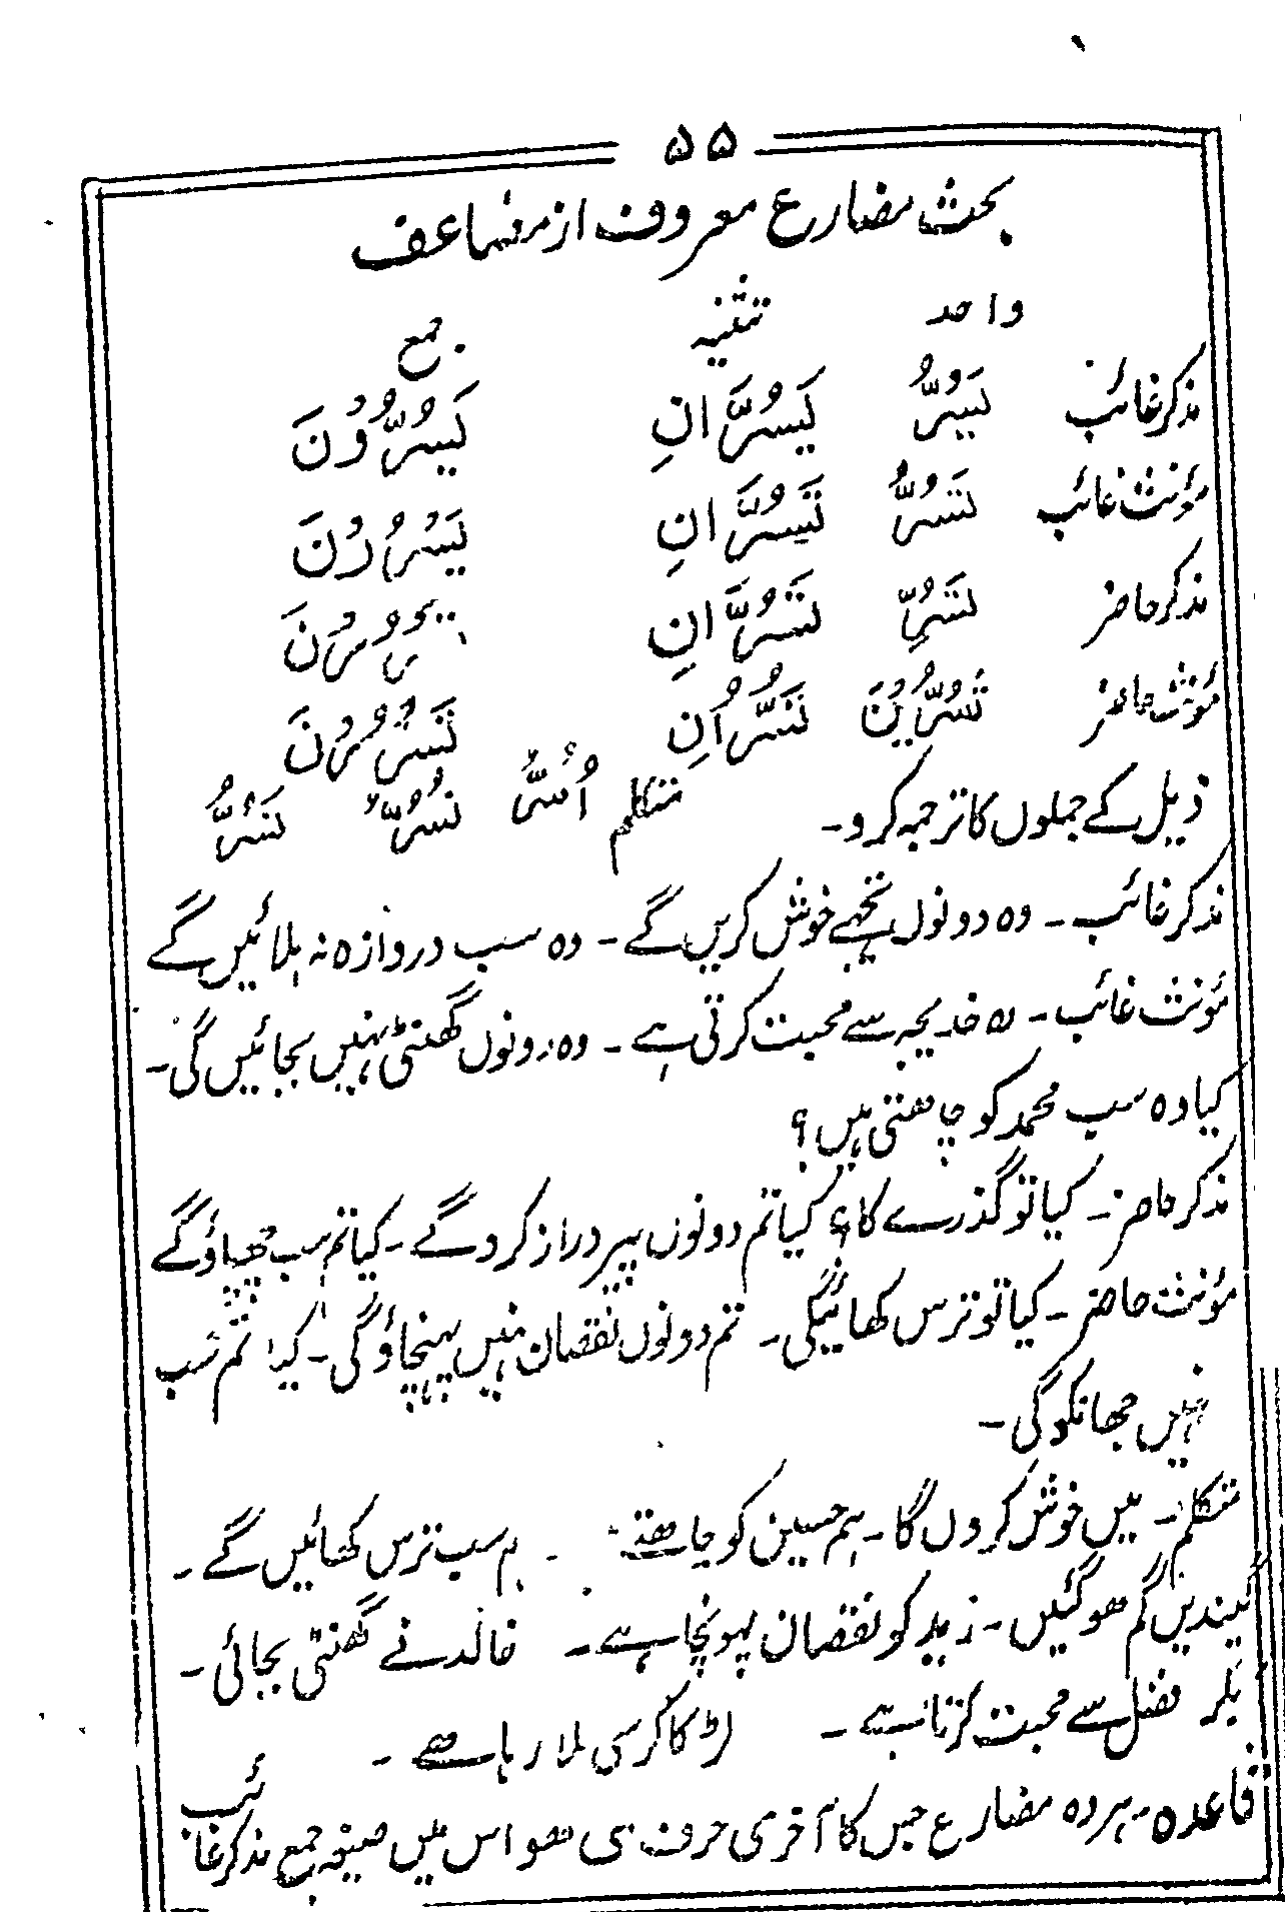 ۵۵
بحث مضارع معروف از مضاعف
واحد تثنیہ جمع
مذکر غائب یَسُرُّ یَسُرَّانِ یَسُرُّوْنَ
مؤنث غائب تَسُرُّ تَسُرَّانِ یَسْرُرْنَ
مذکر حاضر تَسُرُّ تَسُرَّانِ
مؤنث حاضر تَسُرِّیْنَ تَسُرَّانِ تَسْرُرْنَ
ذیل کے جملوں کا ترجمہ کرو۔ متکلم اَسُرُّ نَسُرُّ نَسُرُّ
مذکر غائب ۔ وہ دونوں تجھے خوش کریں گے ۔ وہ سب دروازہ نہ ہلائیں گے
مؤنث غائب ۔ وہ خدیجہ سے محبت کرتی ہے ۔ وہ دونوں گھنٹی نہیں بجائیں گی۔
کیا وہ سب محمد کو چاھتی ہیں؟
مذکر حاضر ۔ کیا تو گذرے گا؟ کیا تم دونوں پیر دراز کروگے ۔ کیا تم سب چھپاؤگے
مؤنث حاضر ۔ کیا تو ترس کھائیگی ۔ تم دونوں نقصان نہیں پہنچاؤگی ۔ کیا تم سب
نہیں جھانکوگی ۔
متکلم ۔ میں خوش کروں گا ۔ ہم حسین کو چاھتے ۔ ہم سب ترس کھائیں گے ۔
گیندیں گم ھوگئیں ۔ زید کو نقصان پہونچا ہے ۔ خالد نے گھنٹی بجائی ۔
بکر فضل سے محبت کرتا ہے ۔ لڑکا کرسی ہلا رہا ھے ۔
قاعدہ ۔ ہر وہ مضارع جس کا آخری حرف ی ھو اس میں صیغہ جمع مذکر غائب